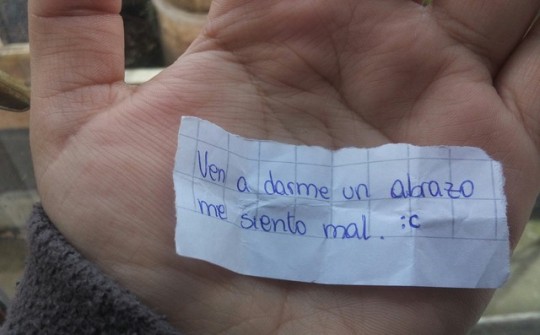 Ven a darme un abrazo
me siento mal. :c